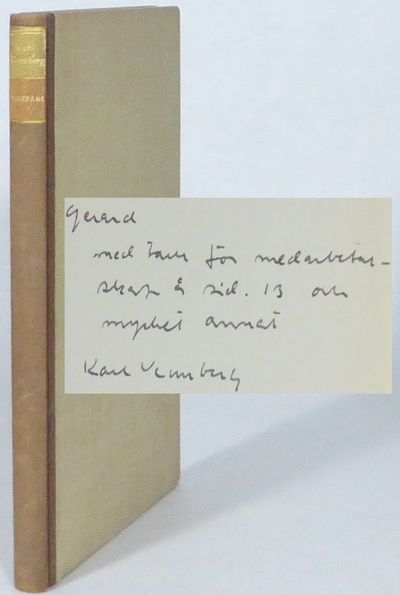 Karl
Vennberg
Gerard
med tack för medarbetar-
skap å sid. 13 och
mycket annat
Karl Vennberg